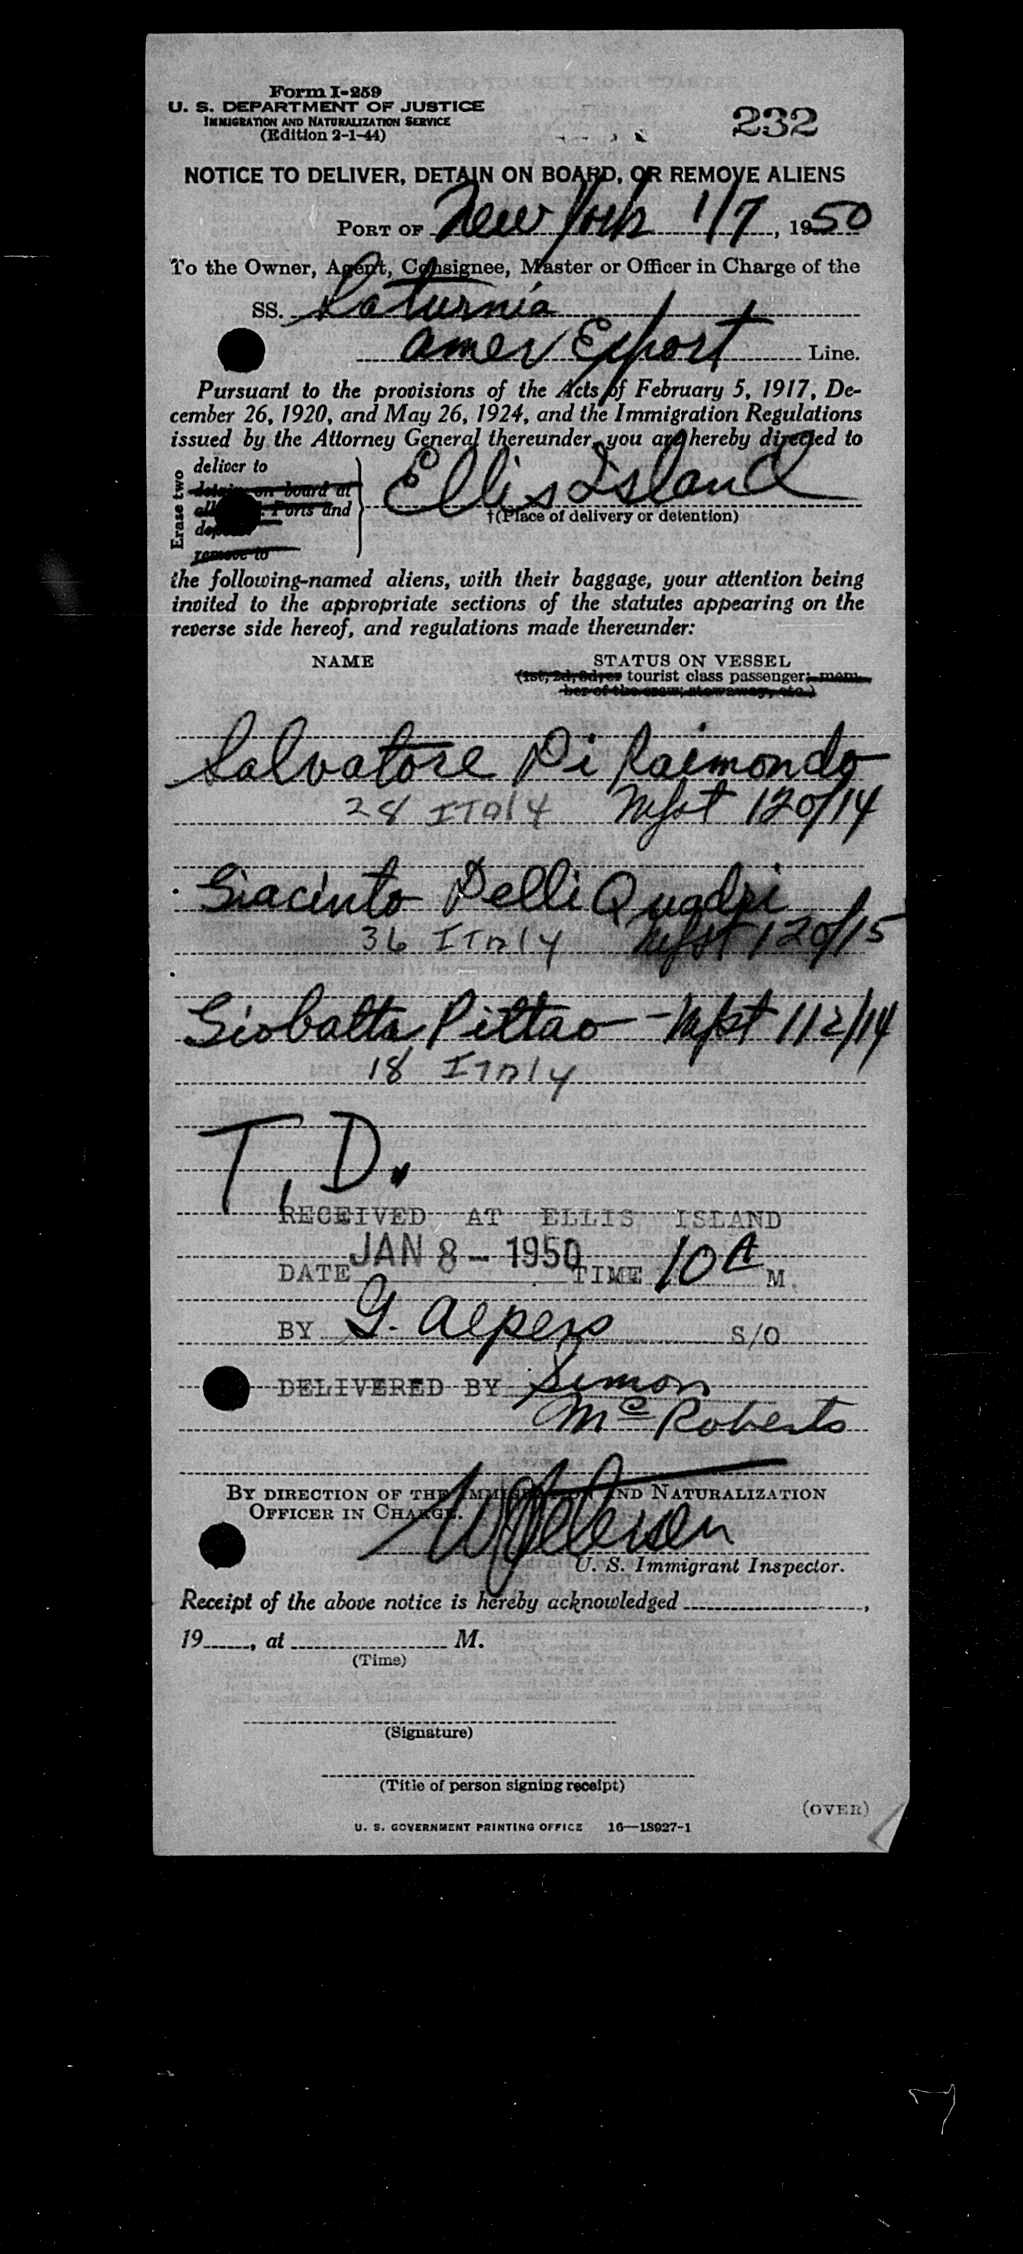 Form I-259
U. S. DEPARTMENT OF JUSTICE
IMMIGRATION AND NATURALIZATION SERVICE
(Edition 2-1-44)
232
NOTICE TO DELIVER, DETAIN ON BOARD, OR REMOVE ALIENS
PORT OF New York 1/7, 1950
To the Owner, Agent, Consignee, Master or Officer in Charge of the
SS. Saturnia
Amer Export Line.
Pursuant to the provisions of the Acts of February 5, 1917, De-
cember 26, 1920, and May 26, 1924, and the Immigration Regulations
issued by the Attorney General thereunder, you are hereby directed to
Erase two
deliver to
detain on board at
all Ports and
remove to
Ellis Island
†(Place of delivery or detention)
the following-named aliens, with their baggage, your attention being
invited to the appropriate sections of the statutes appearing on the
reverse side hereof, and regulations made thereunder:
NAME STATUS ON VESSEL
(1st, 2d, 3d, or tourist class passenger; mem-
ber of the crew; stowaway, etc.)
Salvatore Di Raimondo
28 ITALY Mfst 120/14
Giacinto Delli Quadri
36 ITALY Mfst 120/15
Giobatta Pittao - Mfst 112/14
18 ITALY
T. D.
RECEIVED AT ELLIS ISLAND
DATE JAN 8 - 1950 TIME 10 A M.
BY G. Alpers S/O
DELIVERED BY Simon
McRoberts
BY DIRECTION OF THE IMMIGRATION AND NATURALIZATION
OFFICER IN CHARGE.
U. S. Immigrant Inspector.
Receipt of the above notice is hereby acknowledged ,
19 , at M.
(Time)
(Signature)
(Title of person signing receipt)
(OVER)
U. S. GOVERNMENT PRINTING OFFICE 16—18927-1